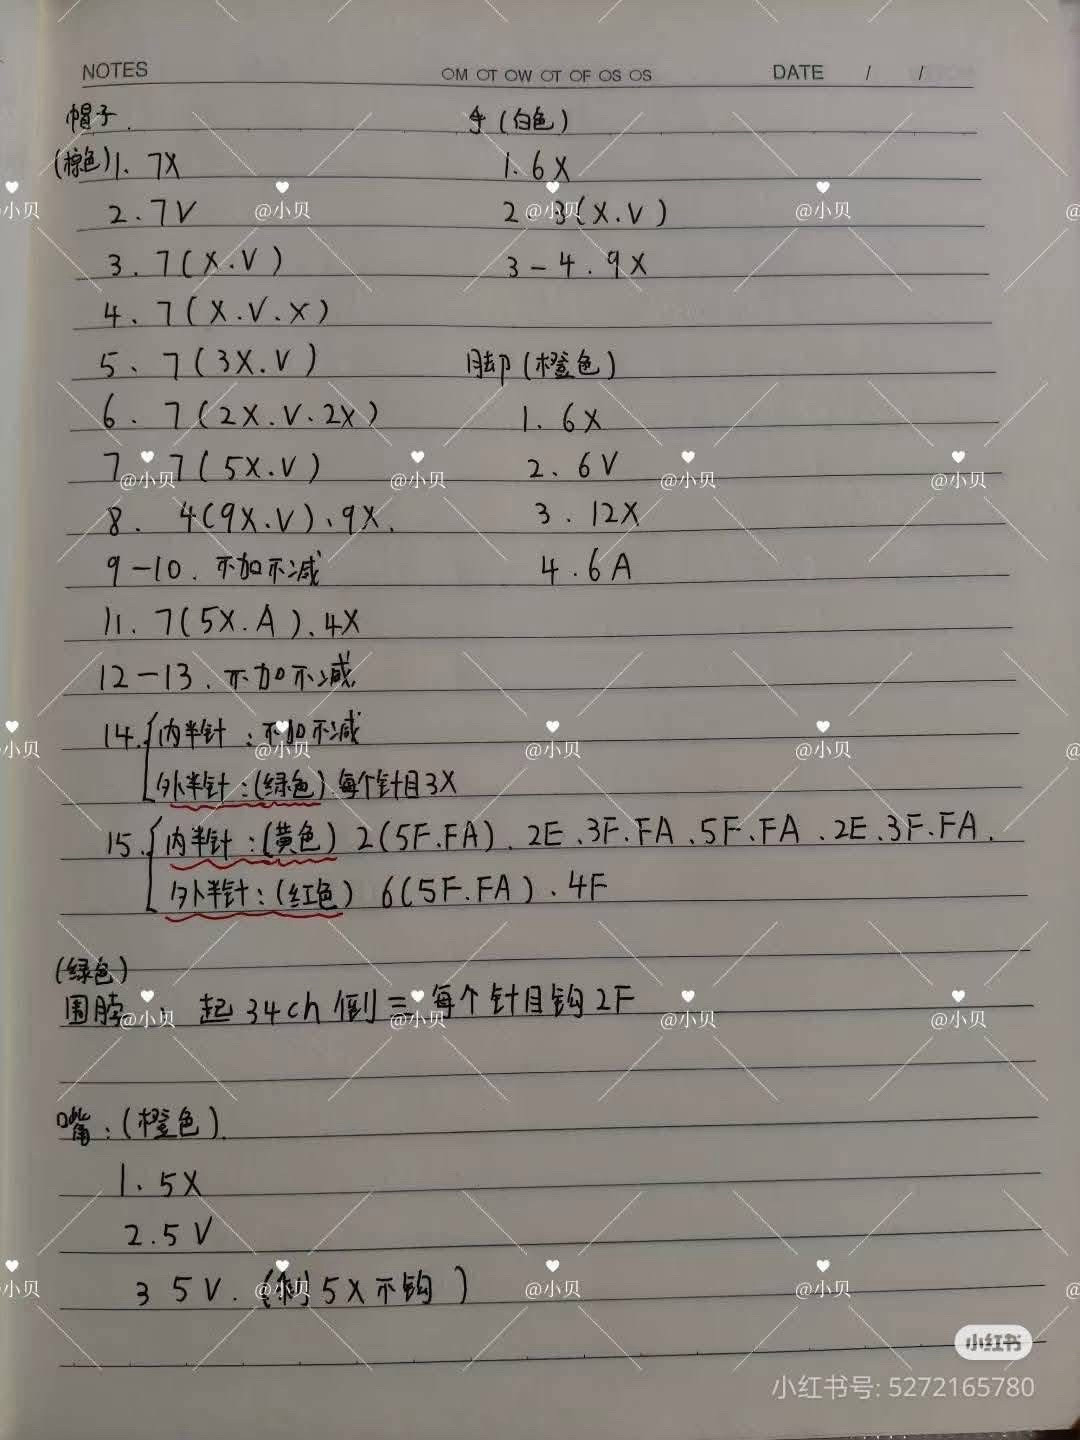 NOTES
OM OT OW OT OF OS OS
DATE / /
帽子.
(棕色)1. 7X
2. 7V
3. 7(X.V)
4. 7(X.V.X)
5. 7(3X.V)
6. 7(2X.V.2X)
7. 7(5X.V)
8. 4(9X.V)、9X.
9-10. 不加不减
11. 7(5X.A)、4X
12-13. 不加不减
14. 内半针:不加不减
外半针:(绿色)每个针目3X
15. 内半针:(黄色) 2(5F.FA).2E.3F.FA.5F.FA.2E.3F.FA.
外半针:(红色) 6(5F.FA).4F
手(白色)
1. 6X
2. 3(X.V)
3-4. 9X
脚(橙色)
1. 6X
2. 6V
3. 12X
4. 6A
(绿色)
围脖: 起34ch 倒三 每个针目钩2F
嘴:(橙色).
1. 5X
2. 5V
3 5V. (剩5X不钩)
@小贝
小红书
小红书号: 5272165780